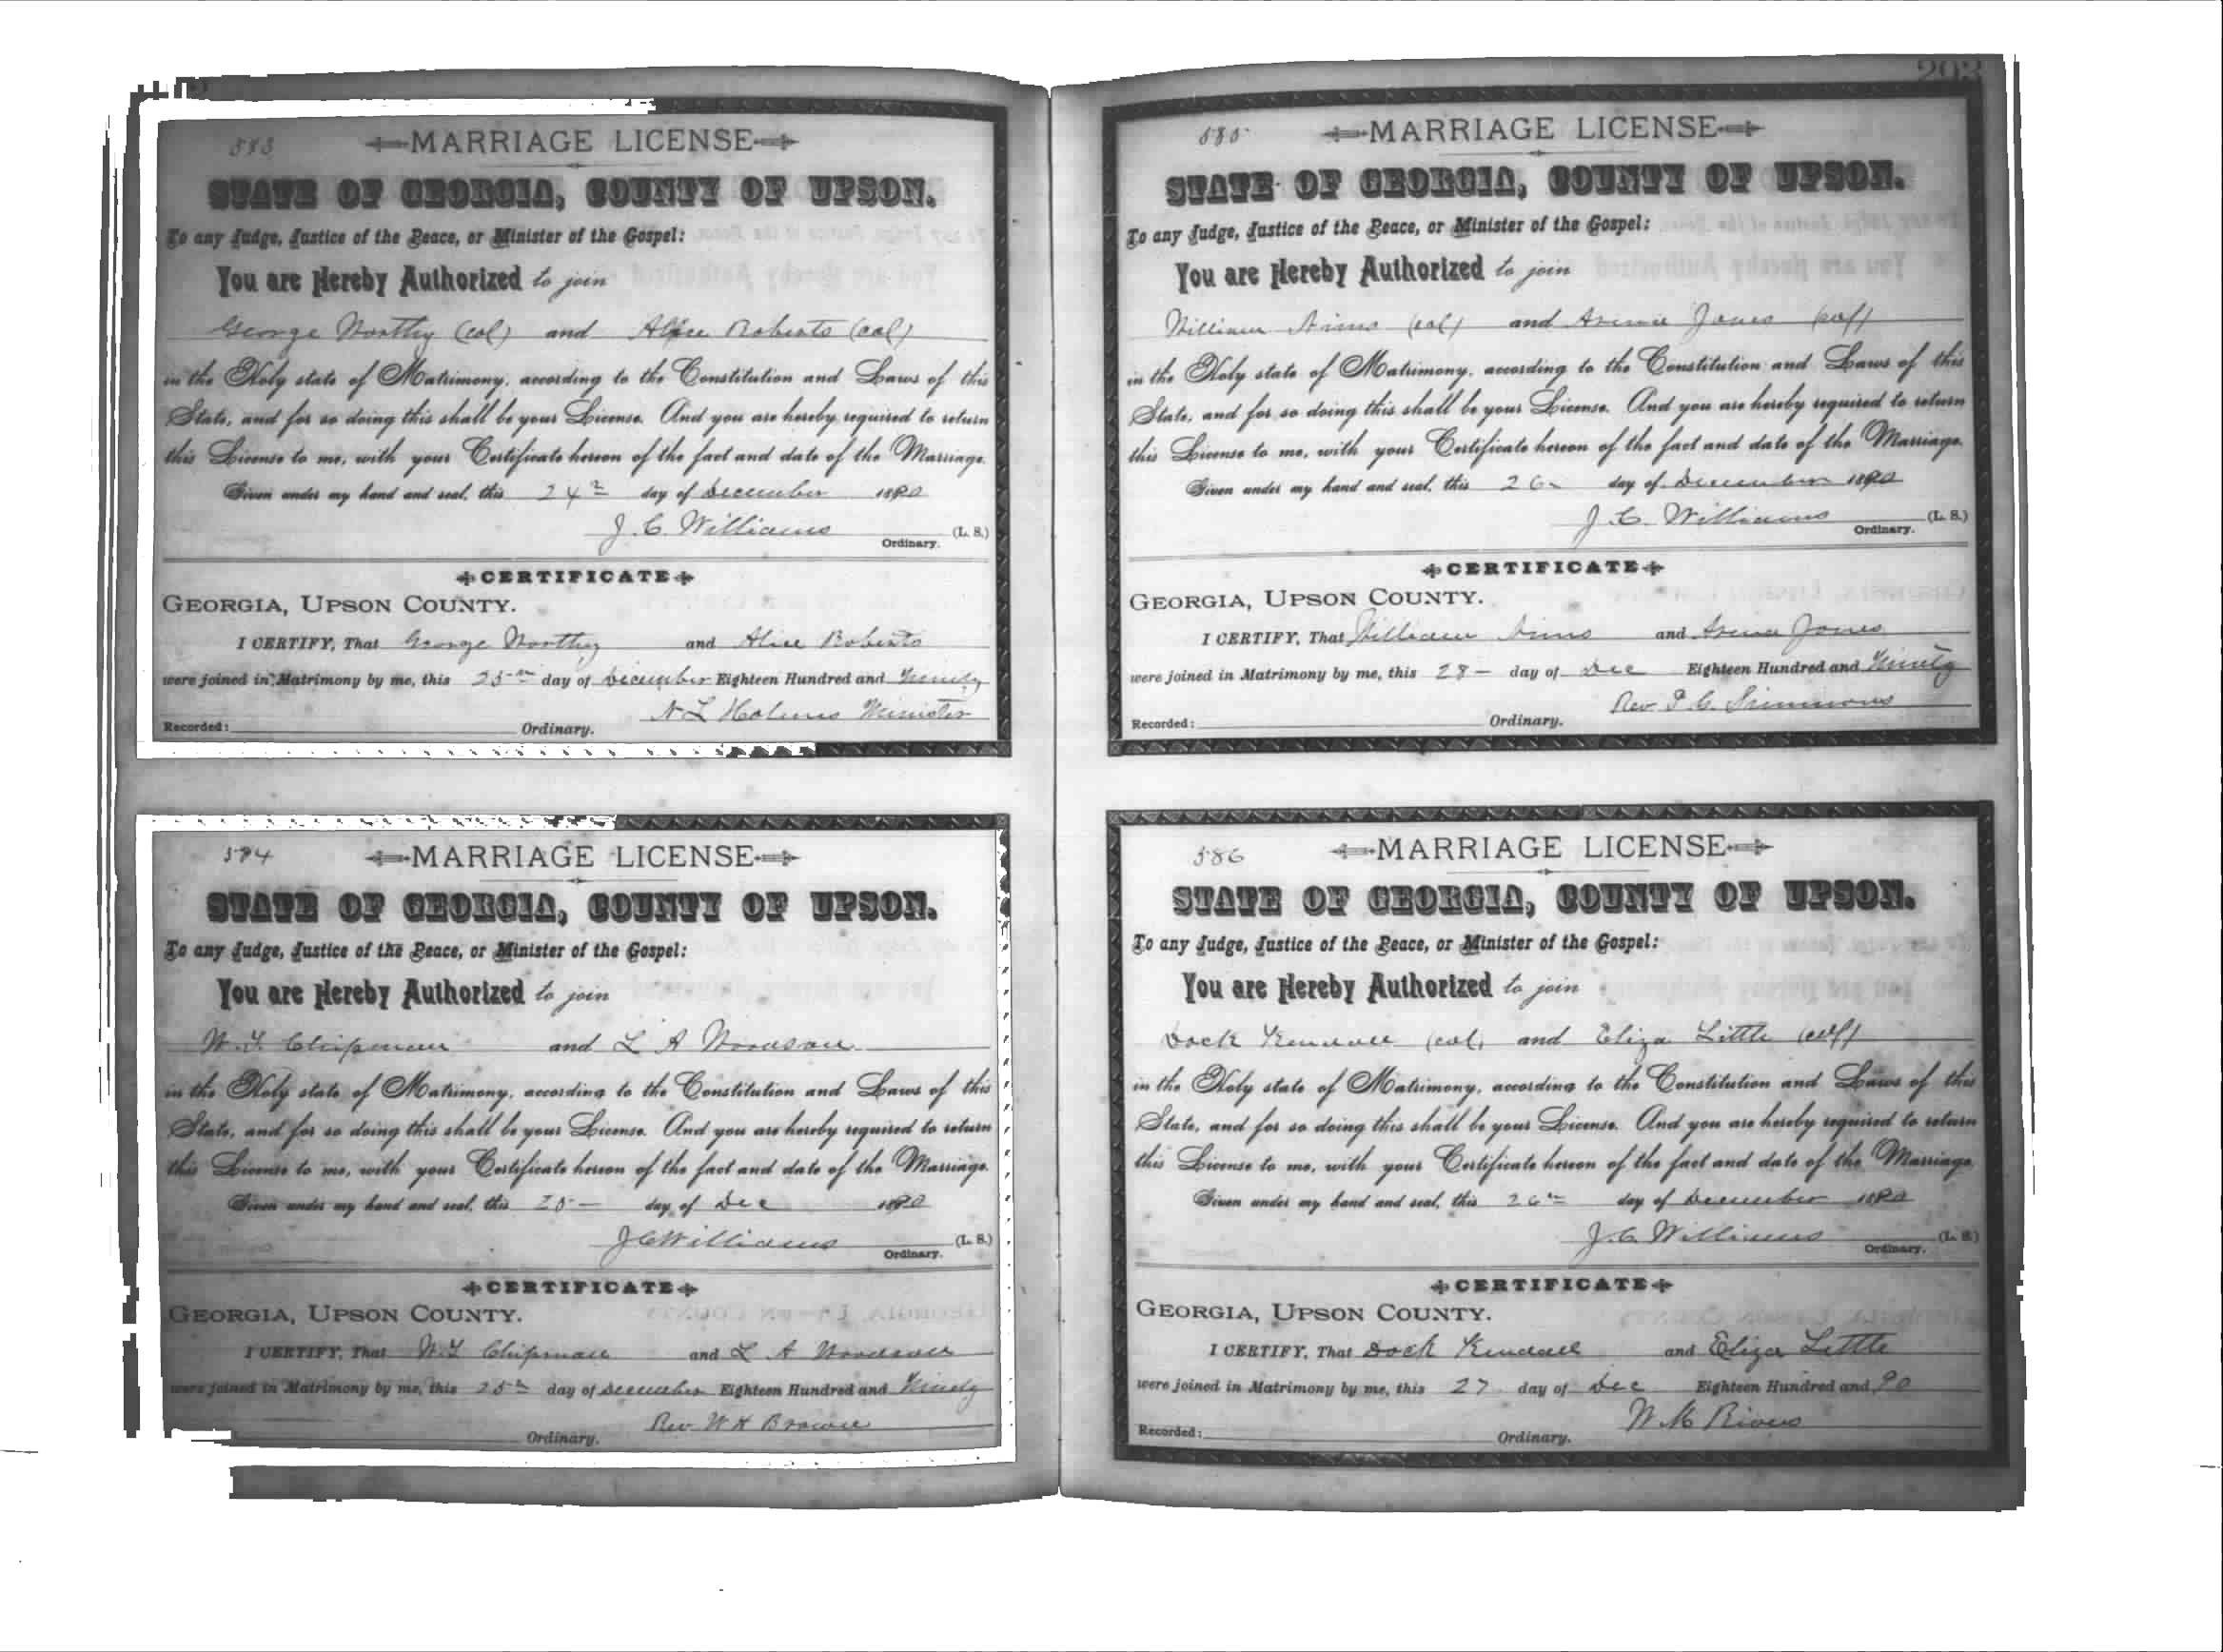 293
583
MARRIAGE LICENSE
STATE OF GEORGIA, COUNTY OF UPSON.
To any Judge, Justice of the Peace, or Minister of the Gospel:
You are Hereby Authorized to join
George Worthy (col) and Alice Roberts (col)
in the Holy state of Matrimony, according to the Constitution and Laws of this
State, and for so doing this shall be your License. And you are hereby required to return
this License to me, with your Certificate hereon of the fact and date of the Marriage.
Given under my hand and seal, this 24th day of December 1890
J. C. Williams (L. S.)
Ordinary.
CERTIFICATE
GEORGIA, UPSON COUNTY.
I CERTIFY, That George Worthy and Alice Roberts
were joined in Matrimony by me, this 25th day of December Eighteen Hundred and Ninety
N L Holmes Minister
Recorded: Ordinary.
584
MARRIAGE LICENSE
STATE OF GEORGIA, COUNTY OF UPSON.
To any Judge, Justice of the Peace, or Minister of the Gospel:
You are Hereby Authorized to join
W. Y. Chipman and L A Woodson
in the Holy state of Matrimony, according to the Constitution and Laws of this
State, and for so doing this shall be your License. And you are hereby required to return
this License to me, with your Certificate hereon of the fact and date of the Marriage.
Given under my hand and seal, this 25 — day of Dec 1890
J C Williams (L. S.)
Ordinary.
CERTIFICATE
GEORGIA, UPSON COUNTY.
I CERTIFY, That Chipman and L A Woodson
were joined in Matrimony by me, this 25th day of December Eighteen Hundred and Ninety
Rev W H Brown
Ordinary.
585
MARRIAGE LICENSE
STATE OF GEORGIA, COUNTY OF UPSON.
To any Judge, Justice of the Peace, or Minister of the Gospel:
You are Hereby Authorized to join
William (col) and Jones (col)
in the Holy state of Matrimony, according to the Constitution and Laws of this
State, and for so doing this shall be your License. And you are hereby required to return
this License to me, with your Certificate hereon of the fact and date of the Marriage.
Given under my hand and seal, this 26 day of December 1890
J. C. Williams (L. S.)
Ordinary.
CERTIFICATE
GEORGIA, UPSON COUNTY.
I CERTIFY, That William and Jones
were joined in Matrimony by me, this 28 — day of Dec Eighteen Hundred and Ninety
Rev P. G. Simmons
Recorded: Ordinary.
586
MARRIAGE LICENSE
STATE OF GEORGIA, COUNTY OF UPSON.
To any Judge, Justice of the Peace, or Minister of the Gospel:
You are Hereby Authorized to join
Dock Kendall (col) and Eliza Little (col)
in the Holy state of Matrimony, according to the Constitution and Laws of this
State, and for so doing this shall be your License. And you are hereby required to return
this License to me, with your Certificate hereon of the fact and date of the Marriage.
Given under my hand and seal, this 26th day of December 1890
J. C. Williams (L. S.)
Ordinary.
CERTIFICATE
GEORGIA, UPSON COUNTY.
I CERTIFY, That Dock Kendall and Eliza Little
were joined in Matrimony by me, this 27 day of Dec Eighteen Hundred and 90
W. M. Rivers
Recorded: Ordinary.